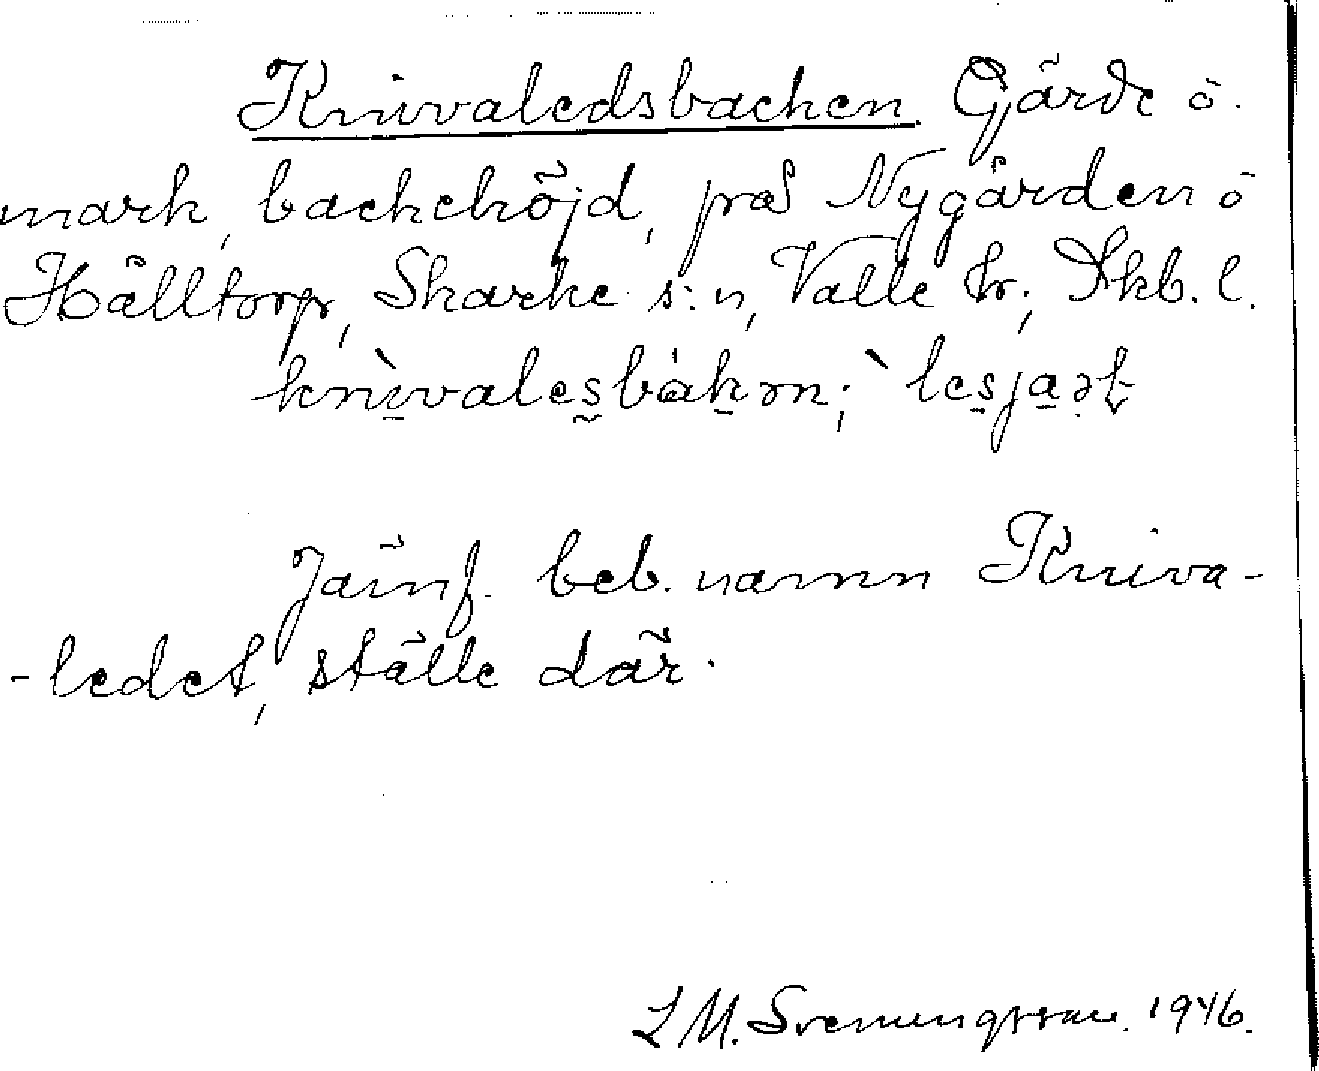 Knivaledsbacken. Gärde o.
mark, backehöjd, på Nygården o
Hälltorp, Skarke s:n, Valle hr; Skb. l.
Jämf. beb. namn Kniva-
-ledet, ställe där.
L M. Svenungsson. 1946.